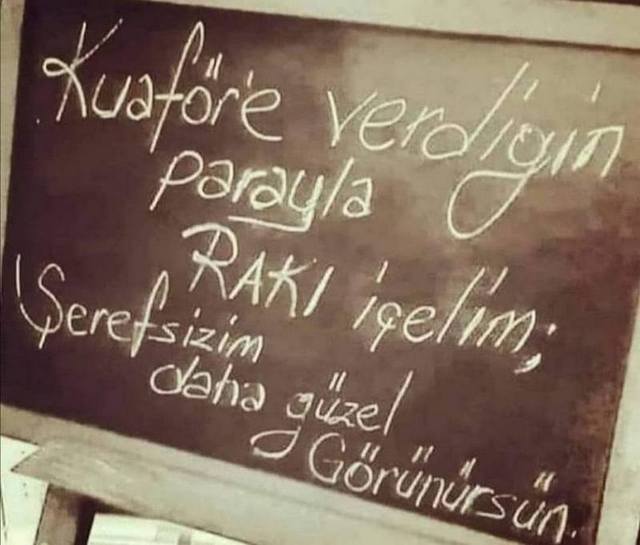 Kuaför'e verdiğin
parayla
RAKI içelim;
Şerefsizim
daha güzel
Görünürsün.